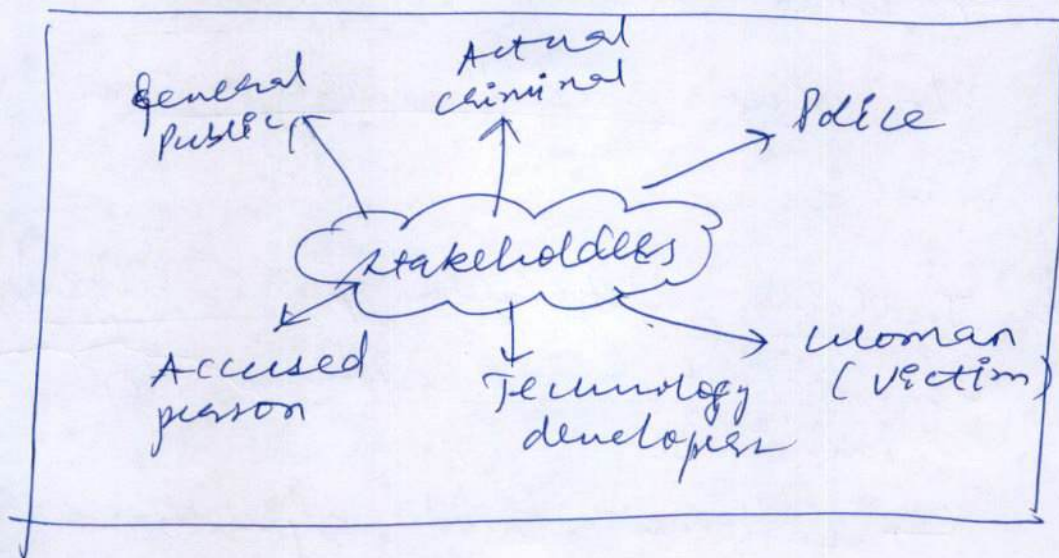 General
Public
Actual
criminal
Police
Stakeholders
Accused
person
Technology
developers
Woman
(Victim)